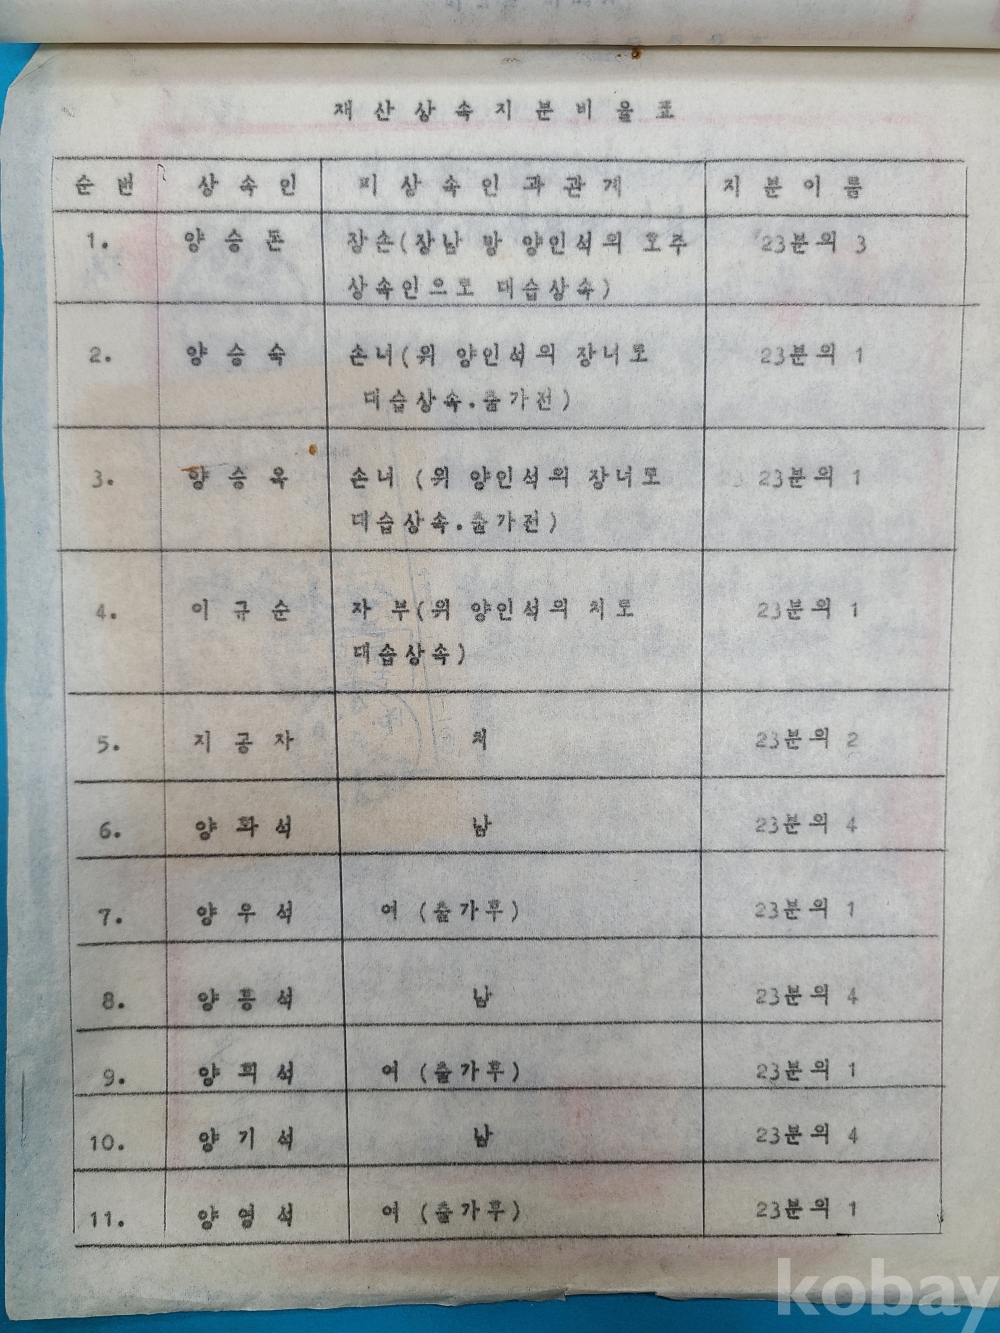 재산상속지분비율표
순번 상속인 피상속인과관계 지분이름
1. 양승돈 장손(장남 망 양인석의 호주 23분의 3
상속인으로 대습상속)
2. 양승숙 손녀(위 양인석의 장녀로 23분의 1
대습상속.출가전)
3. 양승옥 손녀 (위 양인석의 장녀로 23분의 1
대습상속.출가전)
4. 이규순 자 부(위 양인석의 처로 23분의 1
대습상속)
5. 지공자 처 23분의 2
6. 양화석 남 23분의 4
7. 양우석 여 (출가후) 23분의 1
8. 양풍석 남 23분의 4
9. 양희석 여 (출가후) 23분의 1
10. 양기석 남 23분의 4
11. 양영석 여 (출가후) 23분의 1
kobay